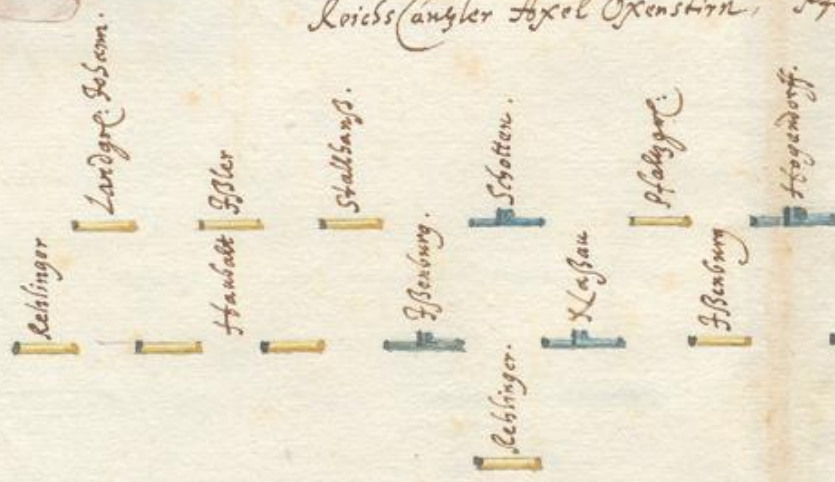 Reichs Cantzler Axel Oxenstirn,
Landgrl: Johann.
Ißler
Stallhanß.
Schotten.
Pfaltzgrl:
Hogendorff.
Rehlinger
Haubalt
Ißenburg.
Naßau
Ißenburg
Rehlinger.